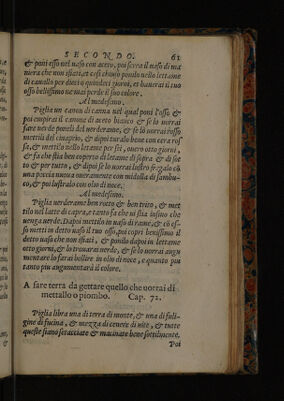 SECONDO. 61
& poni esso nel uaso con aceto, poi serra il uaso di ma
niera che non sfiati, et cosi chiuso ponilo nello lettame
di cauallo per dieci o quindeci giorni, et hauerai il tuo
osso bellissimo ne mai perde il suo colore.
Al medesimo.
Piglia un canon di canna nel qual poni l'osso &
poi empirai il canone di aceto bianco & se lo uorrai
fare uerde ponili del uerderame, & se lo uorrai rosso
mettili del cinaprio, & dipoi turalo bene con cera ros
se, & mettilo nello letame per sei, ouero otto giorni,
& fa che stia ben coperto di letame di sopra & di sot
to & per tutto, & dipoi se lo uorrai lustro fregalo cō
una poccia nuoua oueramente con midolla di sambu-
co, & poi lustralo con olio di noce.
Al medesimo.
Piglia uerderame ben rotto & ben trito, & met
tilo nel latte di capra, e tanto fa che ui stia insino che
uenga uerde. Dapoi mettilo in uaso di rame, & cō es-
so metti in detto uaso il tuo osso, poi copri benissimo il
detto uaso che non sfiati, & ponilo dapoi in lettame
otto giorni, & lo trouarai uerde, & se lo uorrai aug
mentare lo farai bollire in olio di noce, e quanto piu
tanto piu augumentarà il colore.
A fare terra da gettare quello che uorrai di
mettallo o piombo. Cap. 72.
Piglia libra una di terra di monte, & una di fuli-
gine di fucina, & mezza di cenere di uite, & tutte
queste siano setacciate & macinate bene sottilmente.
Poi